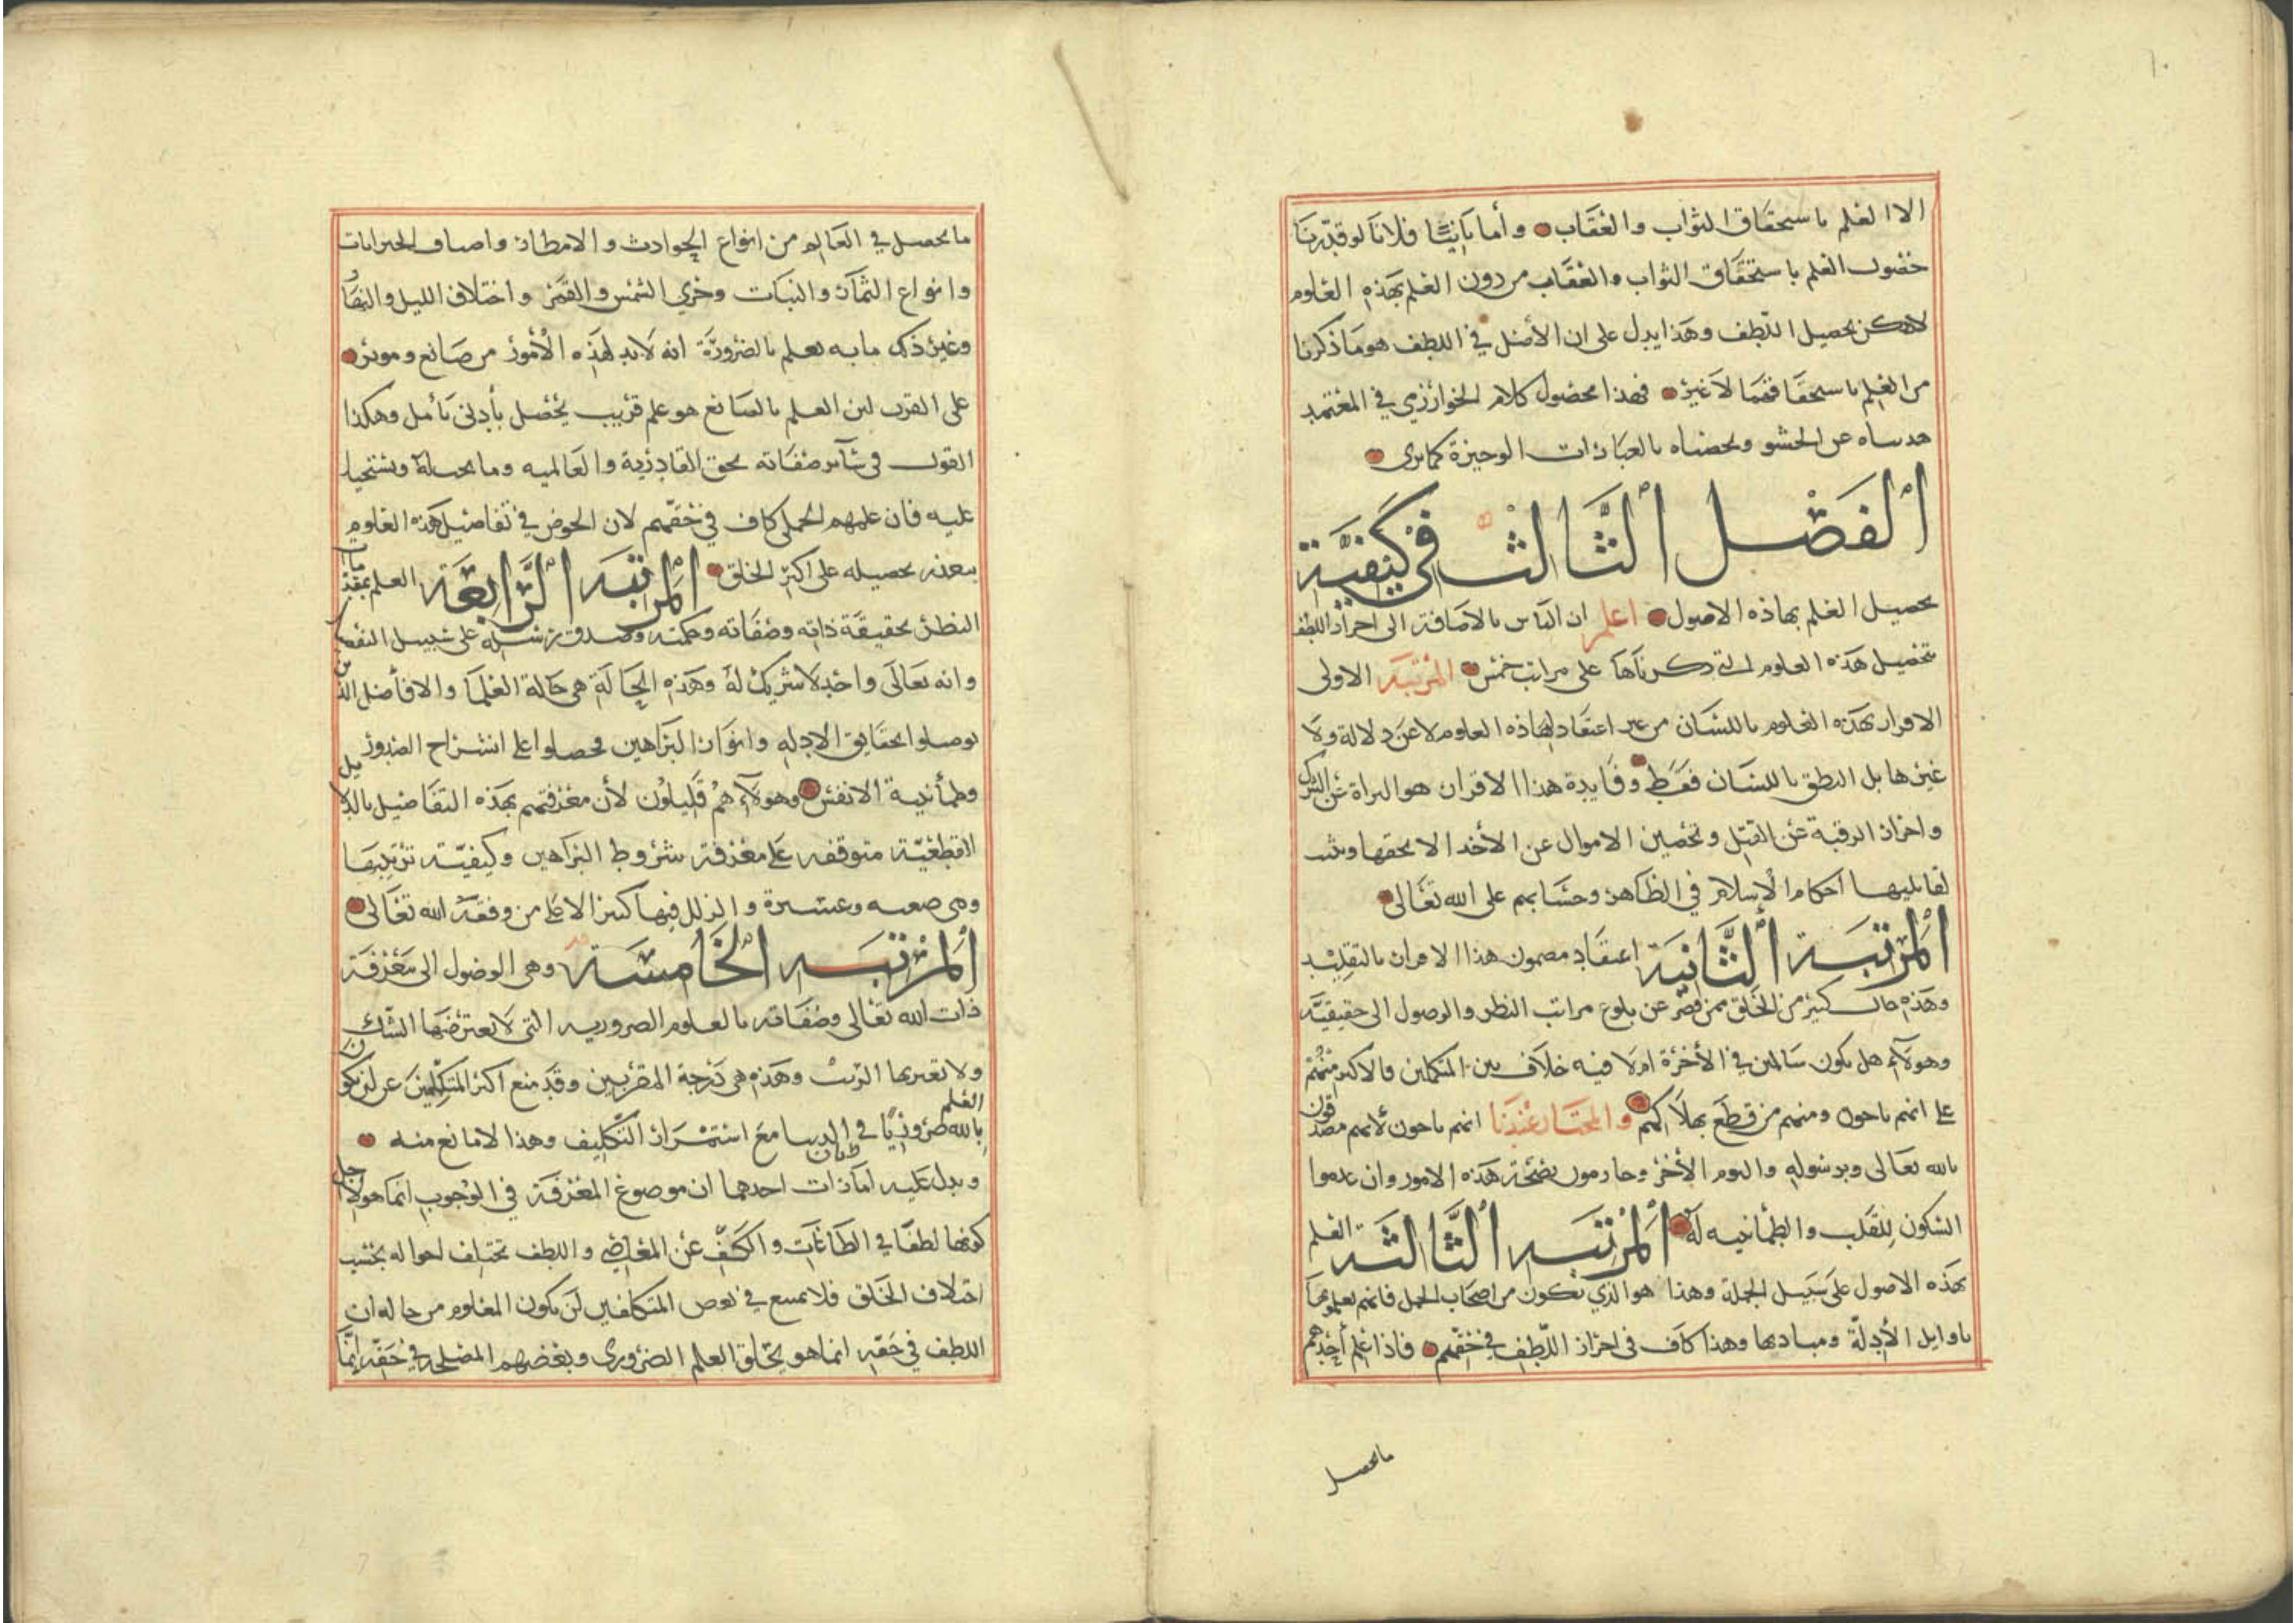 ١٠
الا العلم باستحقاق الثواب والعقاب وأما ثانيًا فلانا لو قدرنا
حصول العلم باستحقاق الثواب والعقاب من دون العلم بهذه العلوم
لامكن تحصيل اللطف وهذا يدل على ان الأصل في اللطف هو ما ذكرنا
من العلم باستحقاقهما لا غير فهذا محصول كلام الخوارزمي في المعتمد
هذبناه عن الحشو ولخصناه بالعبارات الوجيزة كما ترى
الفصل الثالث في كيفية
تحصيل العلم بهاذه الاصول اعلم ان الناس بالاضافة الى احراز اللطف
بتحصيل هذه العلوم التي ذكرناها على مراتب خمس المرتبة الاولى
الاقرار بهذه العلوم باللسان من غير اعتقاد لهاذه العلوم لا عن دلالة ولا
غيرها بل النطق باللسان فقط وفايدة هذا الاقرار هو البراة عن الشرك
واحراز الرقبة عن القتل وتحصين الاموال عن الأخذ الا بحقها وتثبت
لقايليها احكام الإسلام في الظاهر وحسابهم على الله تعالى
المرتبة الثانية اعتقاد مضمون هذا الاقرار بالتقليد
وهذه حال كثير من الخلق ممن قصر عن بلوغ مراتب النظر والوصول الى حقيقته
وهولآء هل يكون سالمين في الأخرة ام لا فيه خلاف بين المتكلمين فالاكثر منهم
على انهم ناجون ومنهم من قطع بهلاكهم والمختار عندنا انهم ناجون لأنهم مصدقون
بالله تعالى وبرسوله واليوم الأخر وجازمون بصحة هذه الامور وان عدموا
السكون للقلب والطمأنينه له المرتبه الثالثه العلم
بهذه الاصول على سبيل الجملة وهذا هو الذي يكون من اصحاب الجمل فانهم يعلمونها
باوايل الأدلة ومباديها وهذا كاف في احراز اللطف في حقهم فاذا علم أحدهم
ما يحصل
ما يحصل في العالم من انواع الحوادث والامطار واصناف الحيوانات
وانواع الثمار والنبات وجري الشمس والقمر واختلاف الليل والنهار
وغير ذلك مما به يعلم بالضرورة انه لا بد لهذه الأمور من صانع ومؤثر
على القرب لان العلم بالصانع هو علم قريب يحصل بأدنى تأمل وهكذا
القول في سآئر صفاته بحق القادرية والعالميه وما يجب له ويستحيل
عليه فان علمهم الجملي كاف في حقهم لان الخوض في تفاصيل هذه العلوم
يتعذر تحصيله على اكثر الخلق المرتبه الرابعة العلم بمقدمات
النظر بحقيقة ذاته وصفاته وحكمته وصدق رسله على سبيل التفصيل
وانه تعالى واحد لا شريك له وهذه الحالة هي حالة العلما والافاضل الذين
توصلوا بحقايق الادله وانوار البراهين فحصلوا على انشراح الصدور
وطمأنينة الانفس وهولآء هم قليلون لأن معرفتهم بهذه التفاصيل بالدلايل
القطعية متوقفه على معرفة شروط البراهين وكيفية ترتيبها
وهي صعبه وعسيرة والزلل فيها كثير الا على من وفقه الله تعالى
المرتبه الخامسة وهي الوصول الى معرفة
ذات الله تعالى وصفاته بالعلوم الضروريه التى لا يعترضها الشك
ولا تعتريها الريب وهذه هي درجة المقربين وقد منع اكثر المتكلمين عن ان يكون
العلم
بالله ضروريًا في الدنيا مع استمرار التكليف وهذا لا مانع منه
ويدل عليه امارتان احدهما ان موضوع المعرفة في الوجوب انما هو لأجل
كونها لطفًا في الطاعات والكف عن المعاصي واللطف تختلف احواله بحسب
اختلاف الخلق فلا يمتنع في بعض المتكلفين ان يكون المعلوم من حاله ان
اللطف في حقه انما هو بخلق العلم الضروري وبعضهم المصلحه في حقه إنما